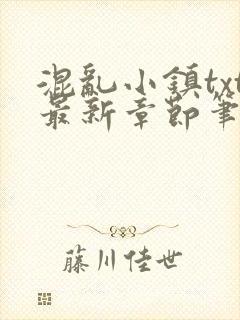 混亂小鎮txt
最新章節筆
藤川佳世